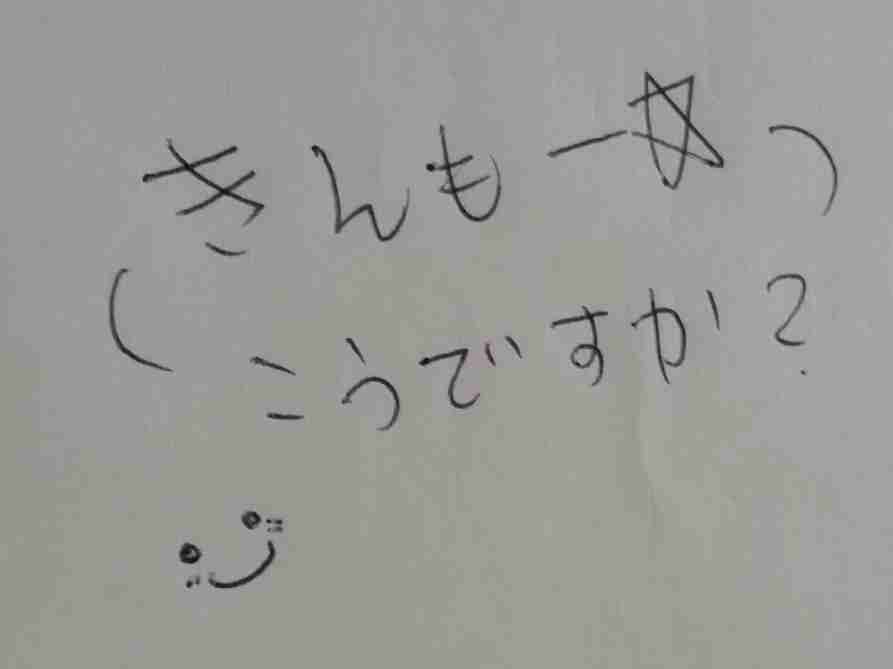 きんもー☆
こうですか?